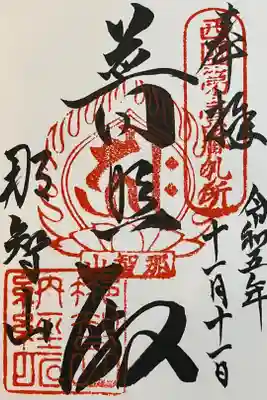 奉拝
西國第壹番御札所
令和五年
十一月十一日
普照殿
那智山
那智山